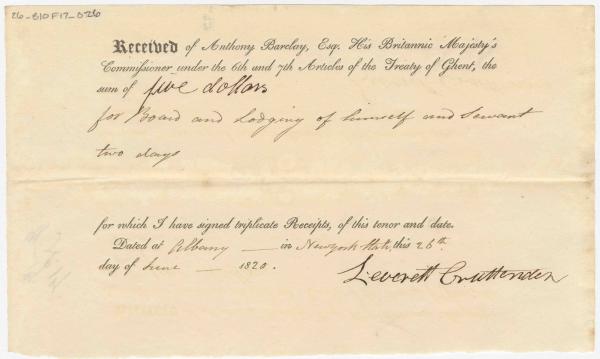 26-B10F17-D26
Received of Anthony Barclay, Esq. His Britannic Majesty's
Commissioner under the 6th and 7th Articles of the Treaty of Ghent, the
sum of five dollars
for Board and Lodging of himself and Servant
two days
for which I have signed triplicate Receipts, of this tenor and date.
Dated at Albany — in Newyork State, this 26th
day of June — 1820.
Leverett Cruttenden